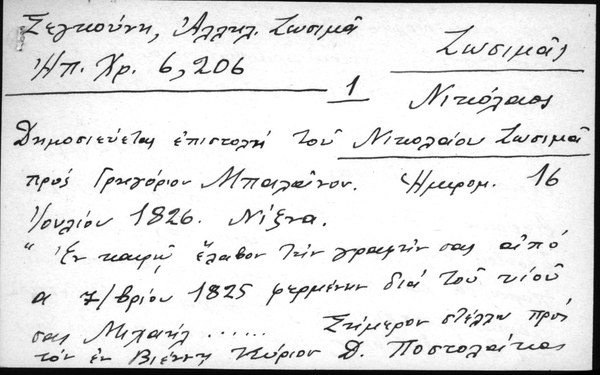 Σεγκούνη, Ἀλληλ. Ζωσιμᾶ
Ἠπ. Χρ. 6, 206
Ζωσιμᾶς
1
Νικόλαος
Δημοσιεύεται ἐπιστολή τοῦ Νικολαίου Ζωσιμᾶ
πρός Γρηγόριον Μπαλάνον. Ἡμερομ. 16
Ἰουλίου 1826. Νίζνα.
"Ἐν καιρῷ ἔλαβον τήν γραφήν σας ἀπό
α 7/βρίου 1825 φερμένην διά τοῦ υἱοῦ
σας Μιχαήλ ...... Σήμερον στέλλω πρός
τόν ἐν Βιέννῃ Κύριον Δ. Ποστολάκας